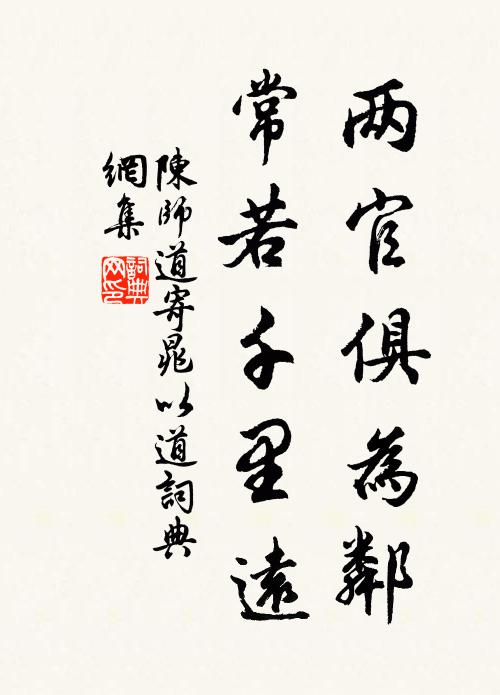 两官俱為鄰
常若千里遠
陳師道寄晁以道詞典
網集
詞典網印